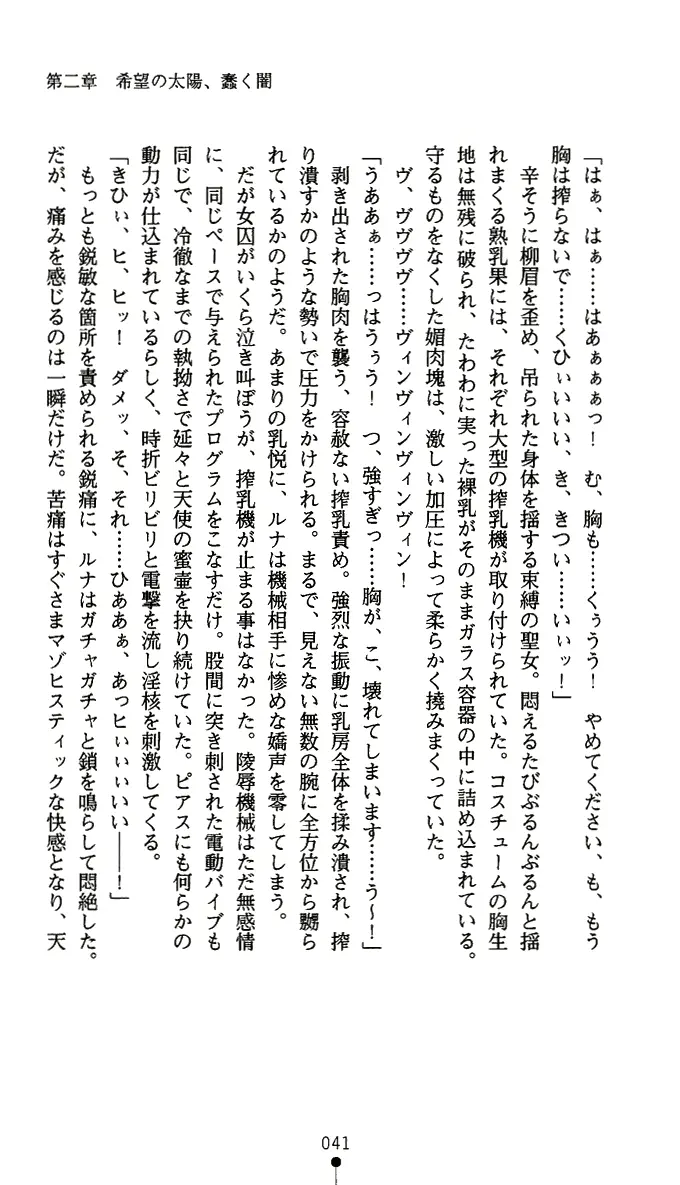 第二章　希望の太陽、蠢く闇
「はぁ、はぁ……はあぁぁぁっ！　む、胸も……くぅうう！　やめてください、も、もう
胸は搾らないで……くひぃいいい、き、きつい……いぃッ！」
　辛そうに柳眉を歪め、吊られた身体を揺する束縛の聖女。悶えるたびぶるんぶるんと揺
れまくる熟乳果には、それぞれ大型の搾乳機が取り付けられていた。コスチュームの胸生
地は無残に破られ、たわわに実った裸乳がそのままガラス容器の中に詰め込まれている。
守るものをなくした媚肉塊は、激しい加圧によって柔らかく撓みまくっていた。
　ヴ、ヴヴヴヴ……ヴィンヴィンヴィンヴィン！
「うああぁ……っはうぅう！　つ、強すぎっ……胸が、こ、壊れてしまいます……う～！」
　剥き出された胸肉を襲う、容赦ない搾乳責め。強烈な振動に乳房全体を揉み潰され、搾
り潰すかのような勢いで圧力をかけられる。まるで、見えない無数の腕に全方位から嬲ら
れているかのようだ。あまりの乳悦に、ルナは機械相手に惨めな嬌声を零してしまう。
　だが女囚がいくら泣き叫ぼうが、搾乳機が止まる事はなかった。陵辱機械はただ無感情
に、同じペースで与えられたプログラムをこなすだけ。股間に突き刺された電動バイブも
同じで、冷徹なまでの執拗さで延々と天使の蜜壷を抉り続けていた。ピアスにも何らかの
動力が仕込まれているらしく、時折ビリビリと電撃を流し淫核を刺激してくる。
「きひぃ、ヒ、ヒッ！　ダメッ、そ、それ……ひああぁ、あっヒぃぃぃいい――！」
　もっとも鋭敏な箇所を責められる鋭痛に、ルナはガチャガチャと鎖を鳴らして悶絶した。
だが、痛みを感じるのは一瞬だけだ。苦痛はすぐさまマゾヒスティックな快感となり、天
041